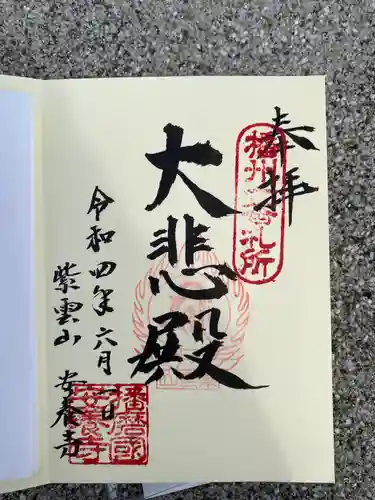 奉拝
播州
札所
大悲殿
令和四年六月一日
紫雲山 安養寺
播磨國
安養寺